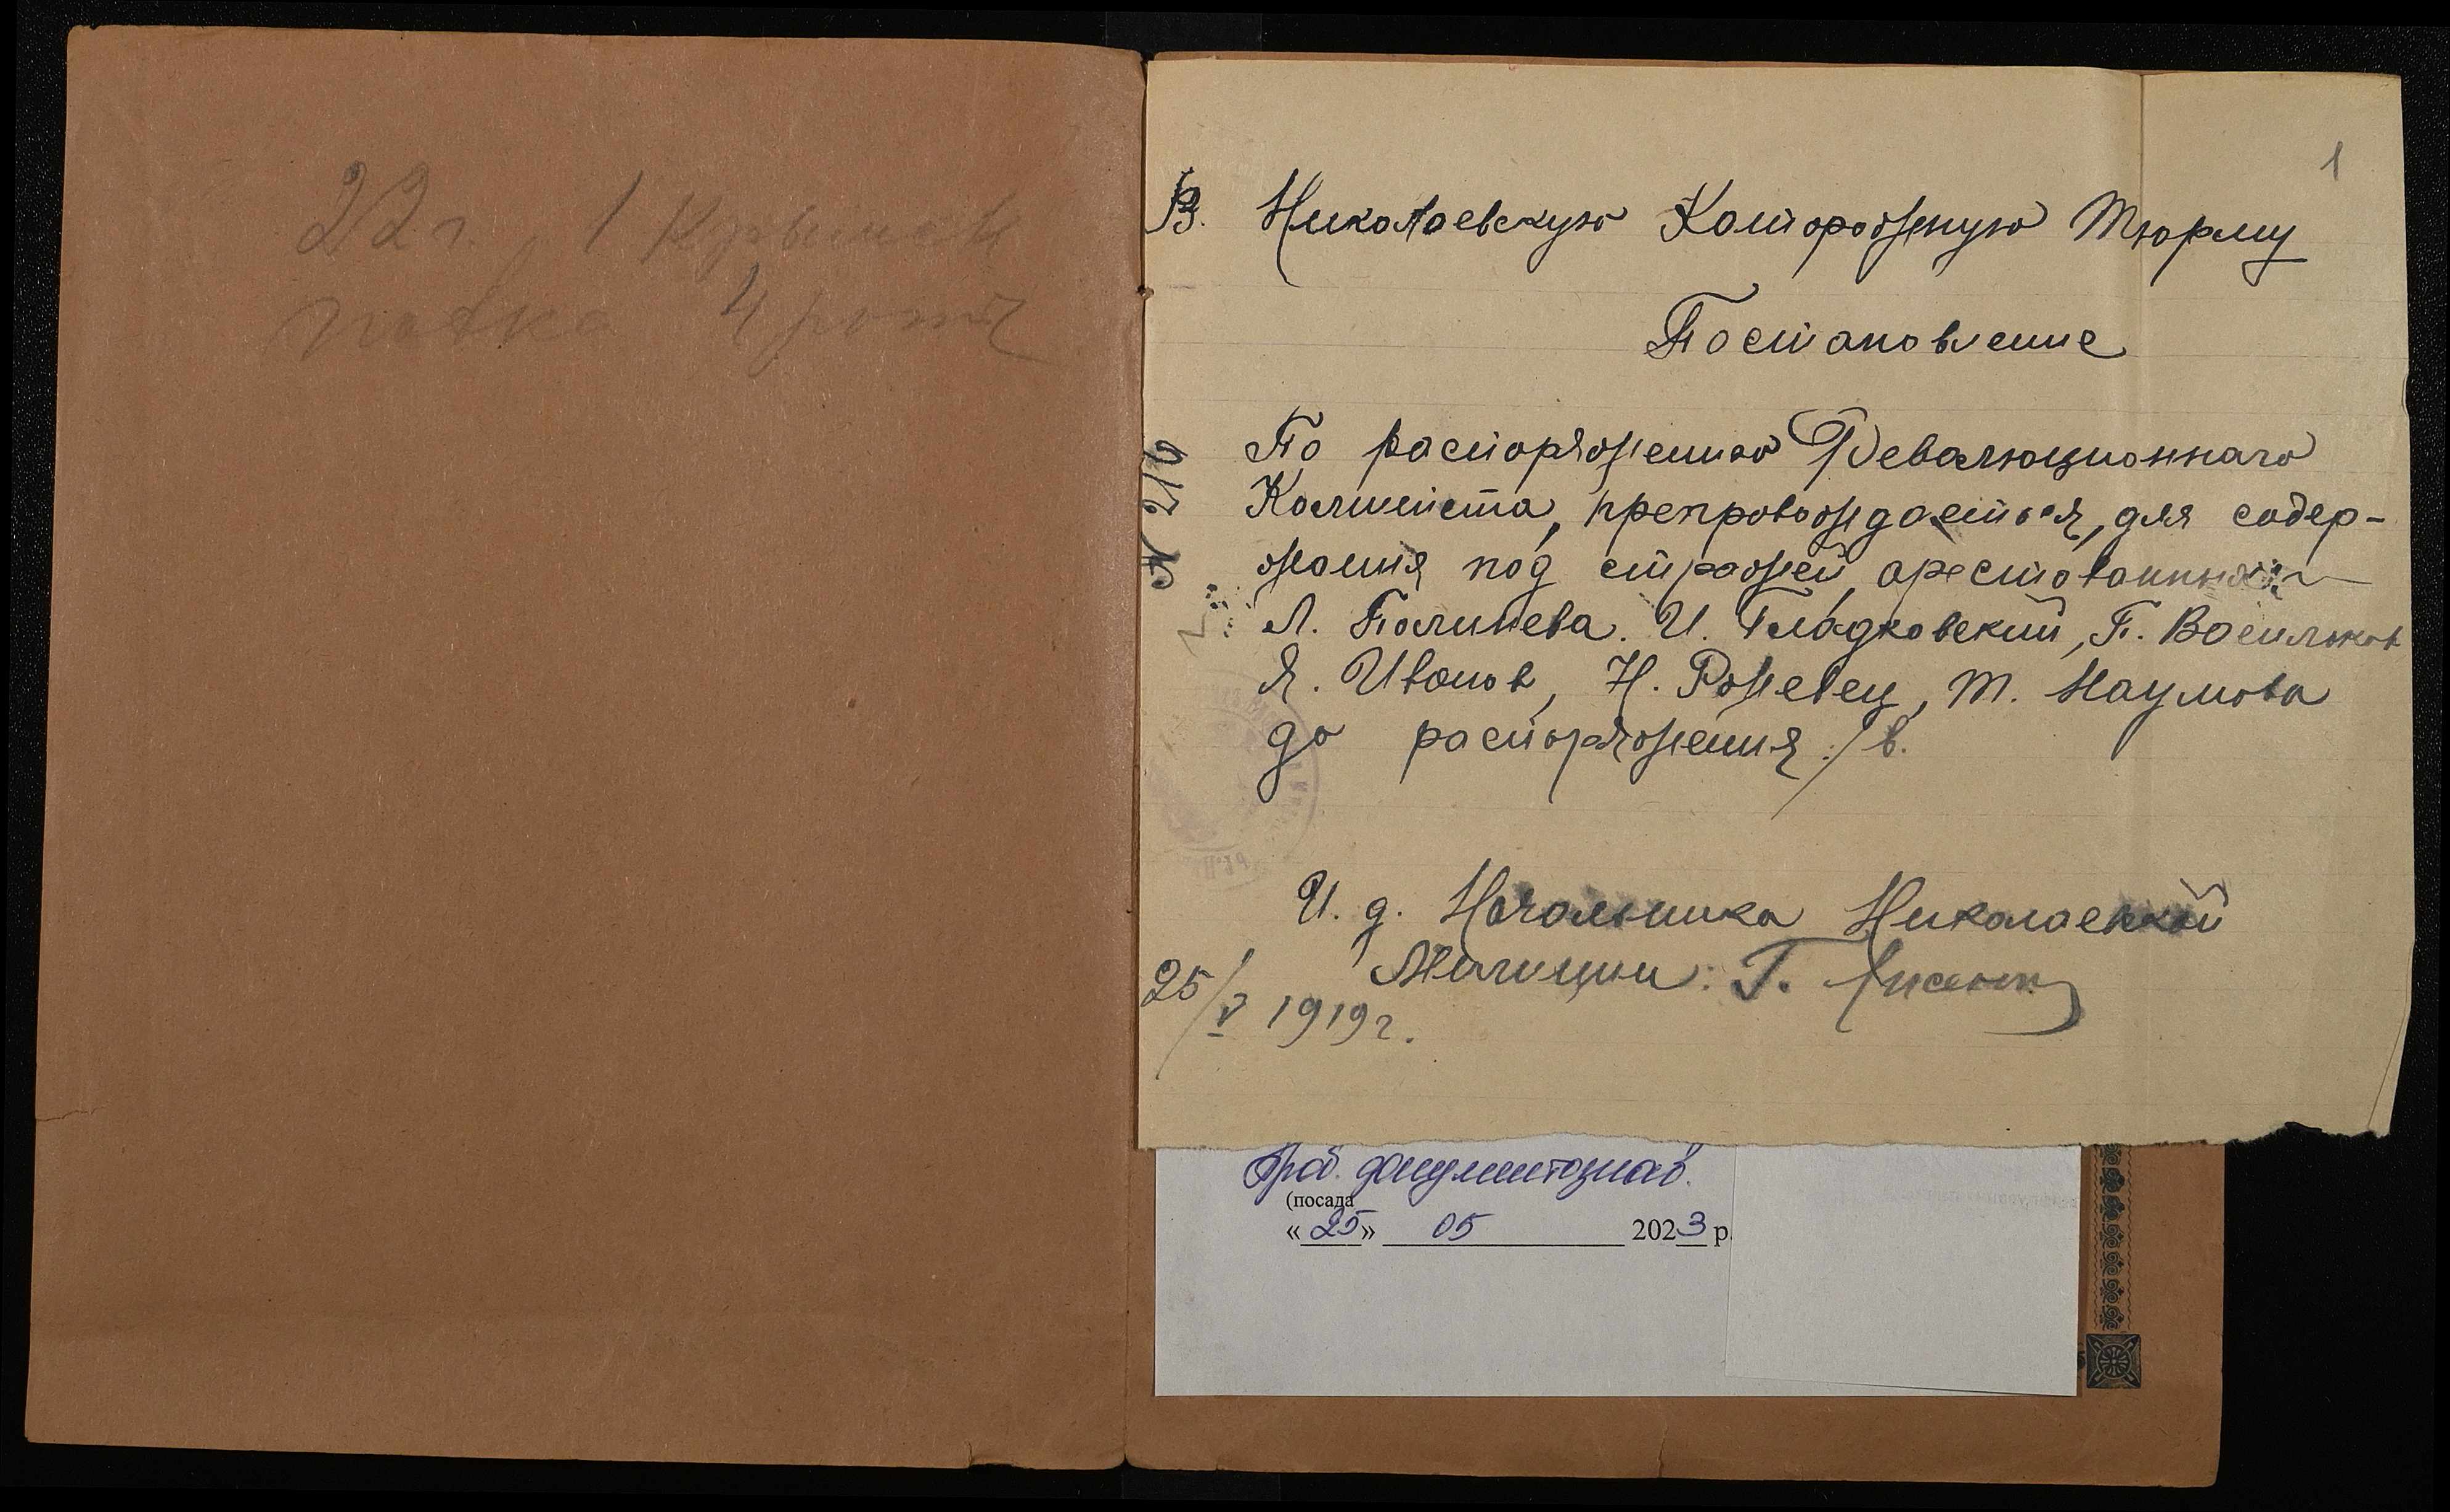 22 г. 1 Крымск
полка 4 роты
1
В. Николаевскую Каторожную Тюрму
Постановление
N 216
По распоряжению Революционнаго
Комитета, препровождаются, для содер-
жания под стражей, арестованных:
Л. Полищева. И. Гладковский, П. Васильков
Я. Иванов, Н. Рожевец, Т. Наумова
до распоряжения ./в.
И. д. Начальника Николаевской
Милиции: Г.
25/V 1919 г.
документознав.
(посада
«25» 05 2023 р.